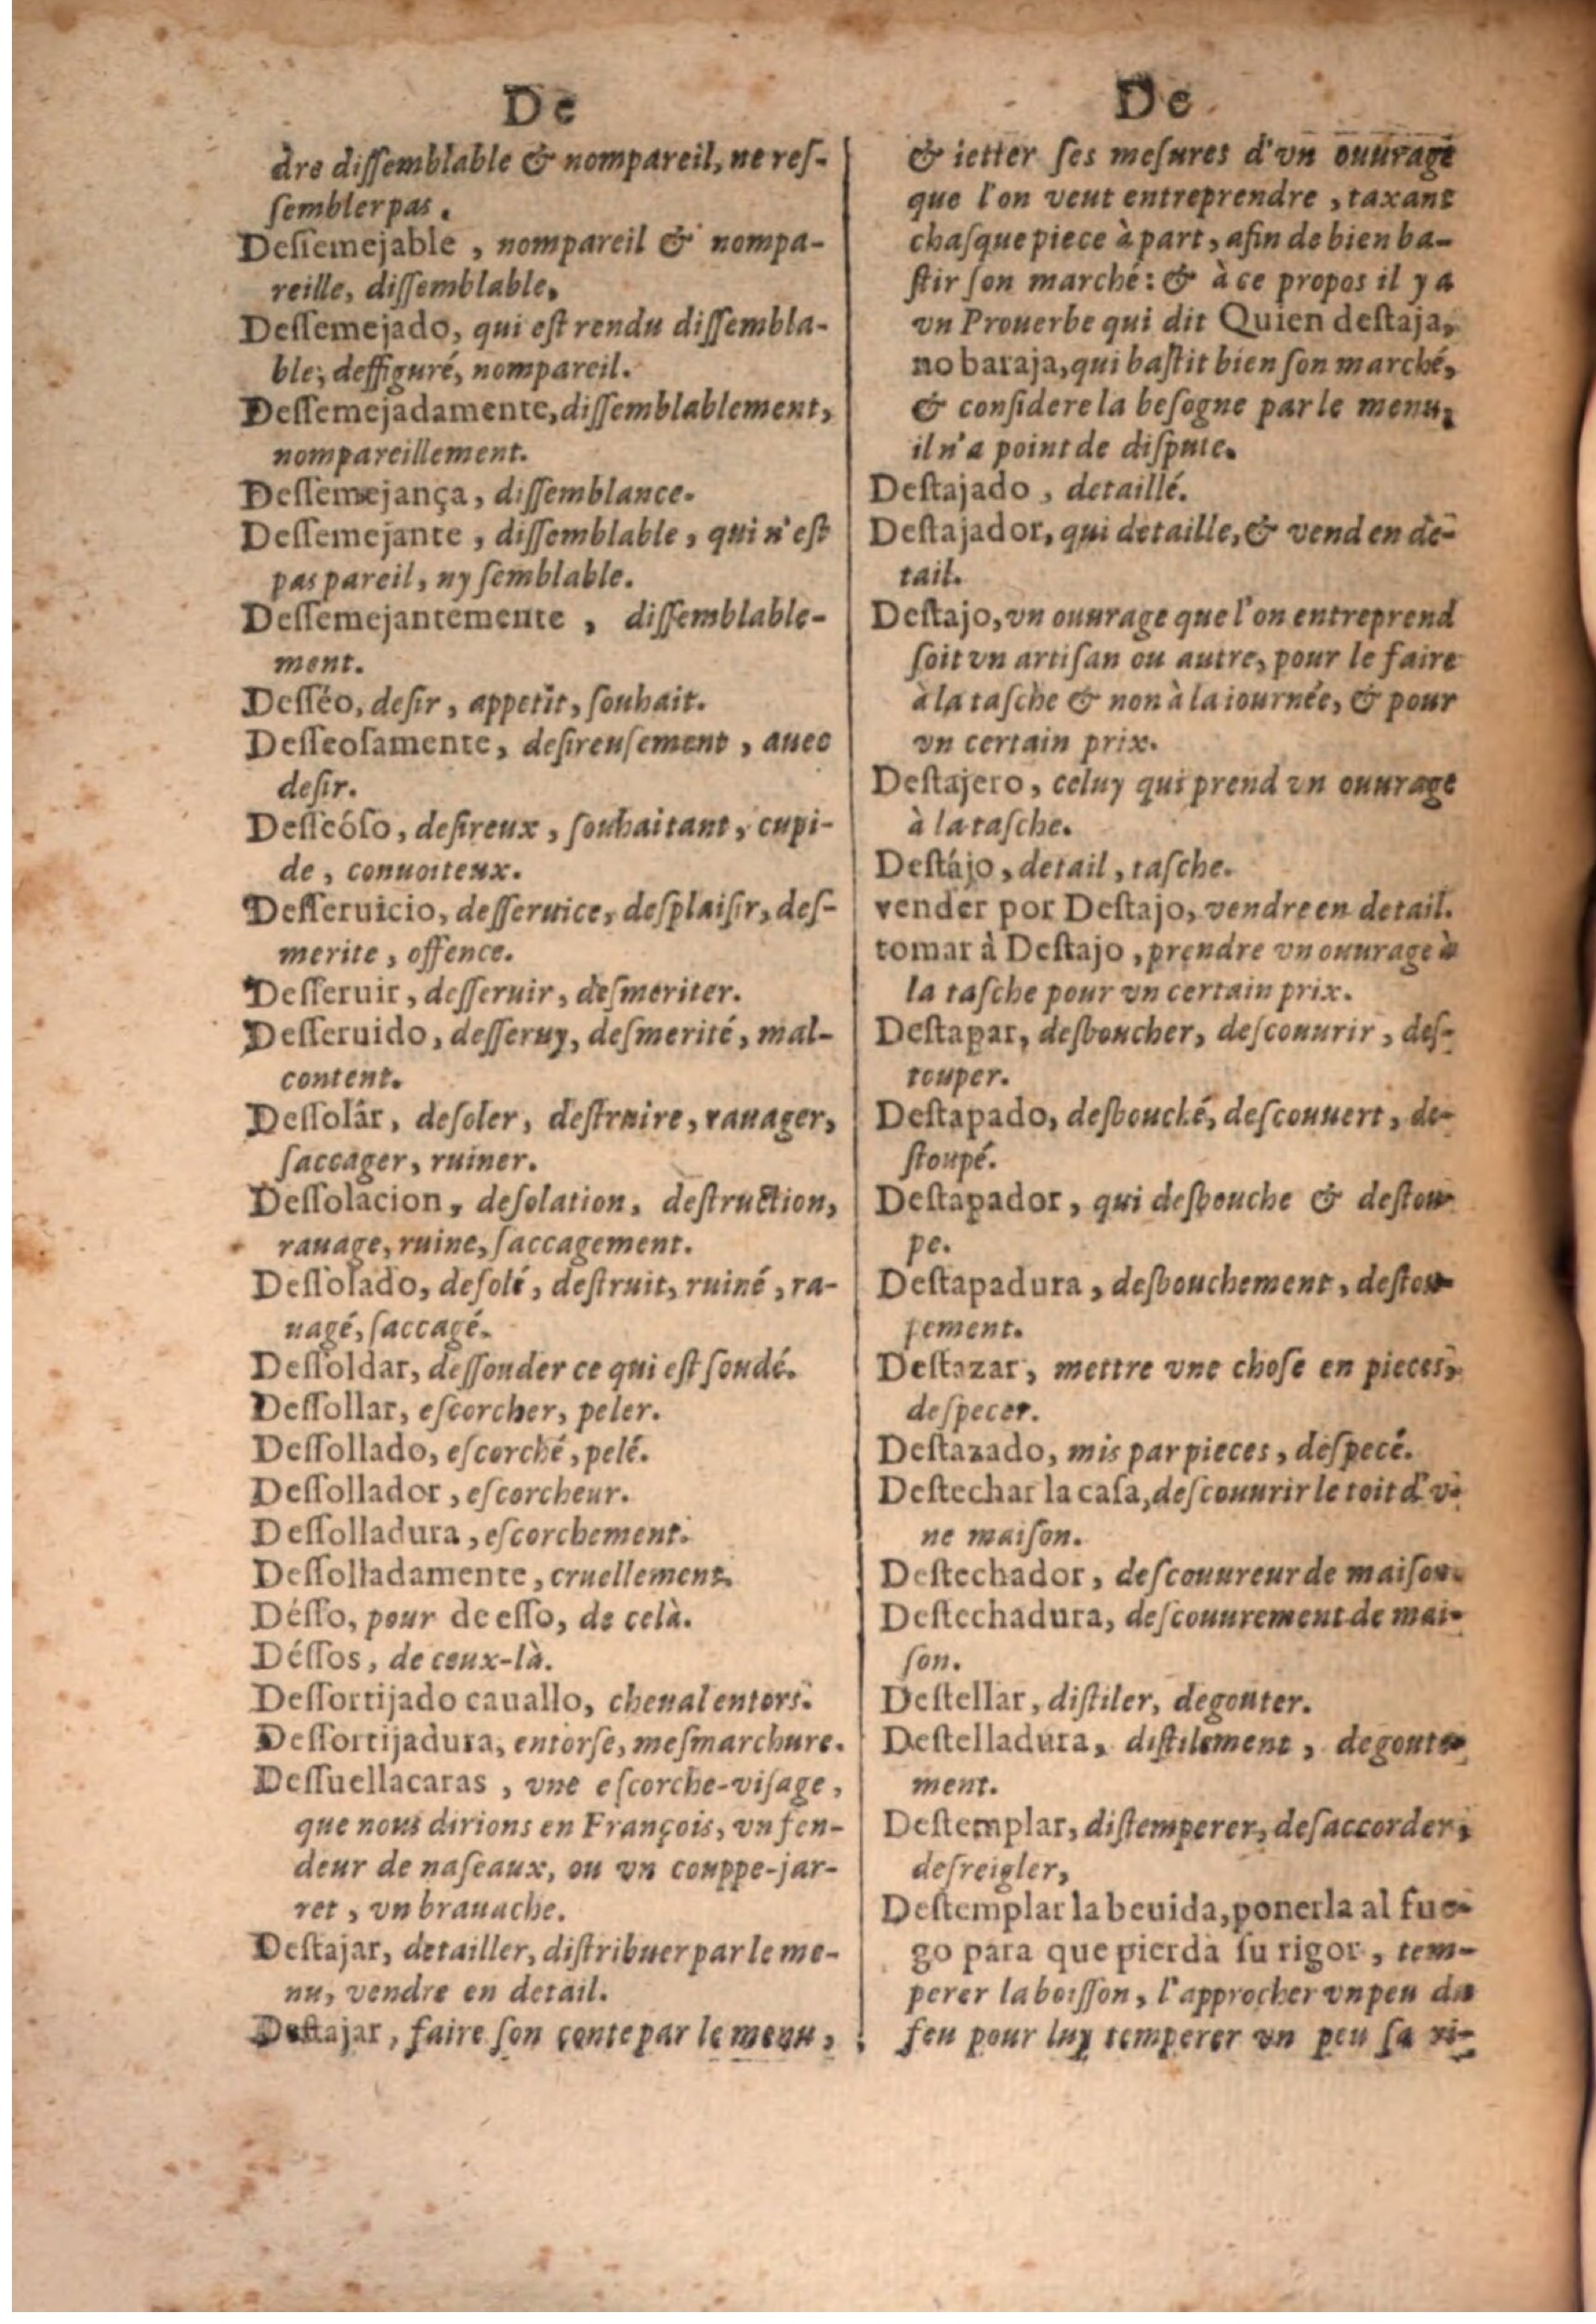 De
dre diſſemblable & nompareil, ne reſ-
ſembler pas.
Deſſemejable, nompareil & nompa-
reille, diſſemblable.
Deſſemejado, qui eſt rendu diſſembla-
ble, deffiguré, nompareil.
Deſſemejadamente, diſſemblablement,
nompareillement.
Deſſemejança, diſſemblance.
Deſſemejante, diſſemblable, qui n'eſt
pas pareil, ny ſemblable.
Deſſemejantemente, diſſemblable-
ment.
Deſſéo, deſir, appetit, ſouhait.
Deſſeoſamente, deſireuſement, auec
deſir.
Deſſeóſo, deſireux, ſouhaitant, cupi-
de, conuoiteux.
Deſſeruicio, deſſeruice, deſplaiſir, deſ-
merite, offence.
Deſſeruir, deſſeruir, deſmeriter.
Deſſeruido, deſſeruy, deſmerité, mal-
content.
Deſſolâr, deſoler, deſtruire, rauager,
ſaccager, ruiner.
Deſſolacion, deſolation, deſtruction,
rauage, ruine, ſaccagement.
Deſſolado, deſolé, deſtruit, ruiné, ra-
uagé, ſaccagé.
Deſſoldar, deſſonder ce qui eſt ſoudé.
Deſſollar, eſcorcher, peler.
Deſſollado, eſcorché, pelé.
Deſſollador, eſcorcheur.
Deſſolladura, eſcorchement.
Deſſolladamente, cruellement.
Déſſo, pour de eſſo, de celà.
Déſſos, de ceux-là.
Deſſortijado cauallo, cheual entors.
Deſſortijadura, entorſe, meſmarchure.
Deſſuellacaras, vne eſcorche-viſage,
que nous dirions en François, vn fen-
deur de naſeaux, ou vn couppe-jar-
ret, vn brauache.
Deſtajar, detailler, diſtribuer par le me-
nu, vendre en detail.
Deſtajar, faire ſon conte par le menu,
De
& ietter ſes meſures d'vn ouurage
que l'on veut entreprendre, taxant
chaſque piece à part, afin de bien ba-
ſtir ſon marché: & à ce propos il y a
vn Prouerbe qui dit Quien deſtaja,
no baraja, qui baſtit bien ſon marché,
& conſidere la beſogne par le menu,
il n'a point de diſpute.
Deſtajado, detaillé.
Deſtajador, qui detaille, & vend en de-
tail.
Deſtajo, vn ouurage que l'on entreprend
ſoit vn artiſan ou autre, pour le faire
à la taſche & non à la iournée, & pour
vn certain prix.
Deſtajero, celuy qui prend vn ouurage
à la taſche.
Deſtájo, detail, taſche.
vender por Deſtajo, vendre en detail.
tomar à Deſtajo, prendre vn ouurage à
la taſche pour vn certain prix.
Deſtapar, desboucher, deſcouurir, deſ-
touper.
Deſtapado, desbouché, deſcouuert, de-
ſtoupé.
Deſtapador, qui desbouche & deſtou-
pe.
Deſtapadura, desbouchement, deſtou-
pement.
Deſtazar, mettre vne choſe en pieces,
deſpecer.
Deſtazado, mis par pieces, deſpecé.
Deſtechar la caſa, deſcouurir le toit d'v-
ne maiſon.
Deſtechador, deſcouureur de maiſon.
Deſtechadura, deſcouurement de mai-
ſon.
Deſtellar, diſtiler, degouter.
Deſtelladura, diſtilement, degoute-
ment.
Deſtemplar, diſtemperer, deſaccorder,
deſreigler,
Deſtemplar la beuida, ponerla al fue-
go para que pierda ſu rigor, tem-
perer la boiſſon, l'approcher vn peu du
feu pour luy temperer vn peu ſa ri-